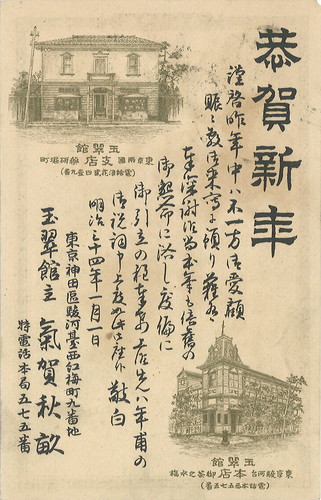 恭賀新年
謹啓昨年中ハ不一方御愛顧
賑々敷御来寫を
奉深謝候尚本年も倍舊の
御起命に浴し度偏に
御引立の程奉希上候先ハ年甫の
御祝詞申上度如此に御座候 敬白
明治三十四年一月一日
東京神田區駿河臺西紅梅町九番地
玉翠館主 氣賀秋畝
特電話本局五七五番
玉翠館
東京両國支店 藥研堀町
玉翠館
東京駿河台本店 御茶之水橋
(電話本局五七五番)